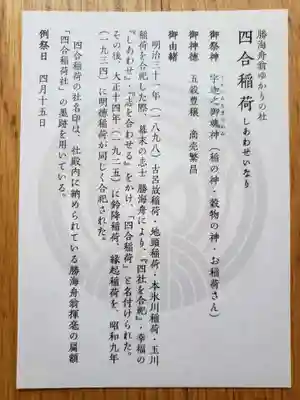 勝海舟翁ゆかりの社
四合稲荷 しあわせいなり
御祭神 宇迦之御魂神(稲の神・穀物の神・お稲荷さん)
御神徳 五穀豊穣、商売繁昌
御由緒
明治三十一年(一八九八)古呂故稲荷・地頭稲荷・本氷川稲荷・玉川
稲荷を合祀した際、幕末の志士 勝海舟により、『四社を合祀』・幸福の
『しあわせ』・『志を合わせる』をかけ、「四合稲荷」と名付けられた。
その後、大正十四年(一九二五)に鈴降稲荷、縁起稲荷を、昭和九年
(一九三四)に明徳稲荷が同じく合祀された。
四合稲荷の社名印は、社殿内に納められている勝海舟翁揮毫の扁額
「四合稲荷社」の墨跡を用いている。
例祭日 四月十五日